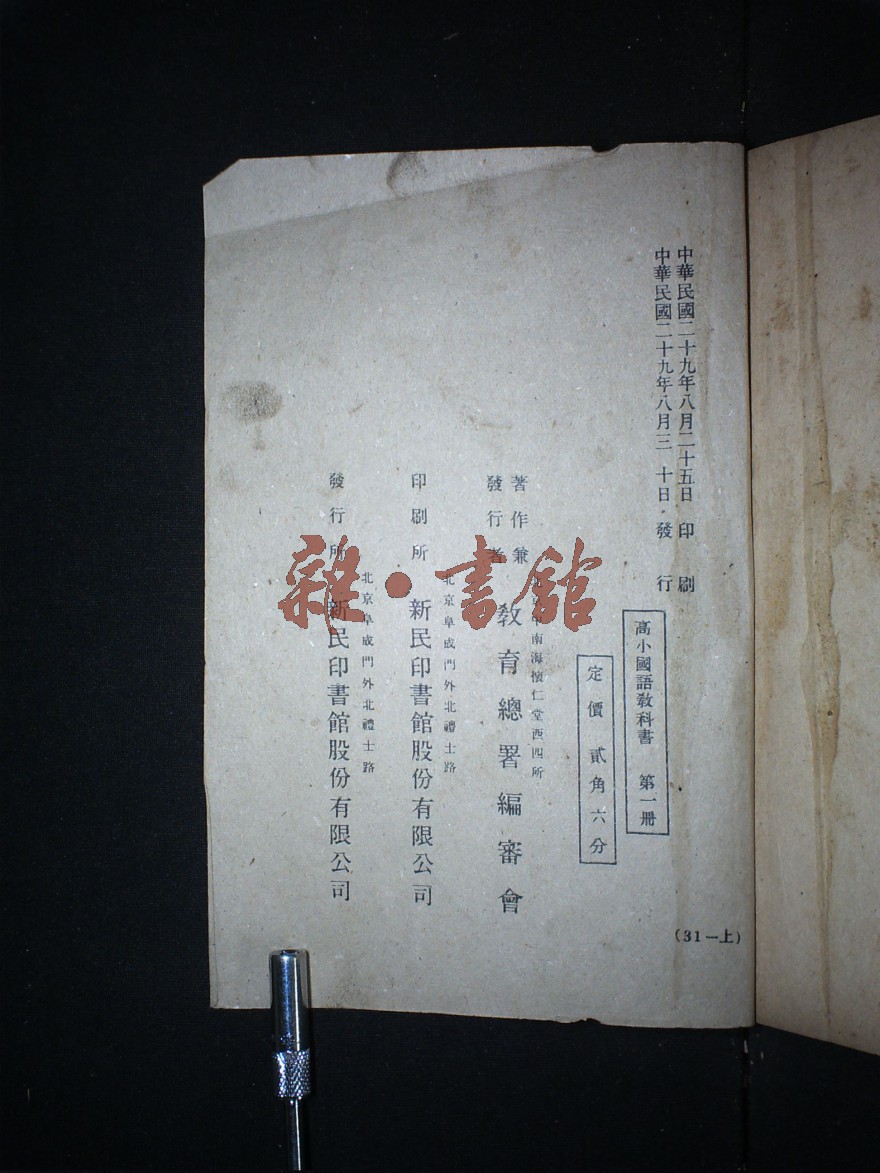 中華民國二十九年八月二十五日 印刷
中華民國二十九年八月三十日 發行
高小國語教科書 第一冊
定價貳角六分
著作兼
發行者
中南海懷仁堂西四所
教育總署編審會
印刷所
北京阜成門外北禮士路
新民印書館股份有限公司
發行所
北京阜成門外北禮士路
新民印書館股份有限公司
(31—上)
雜·書館